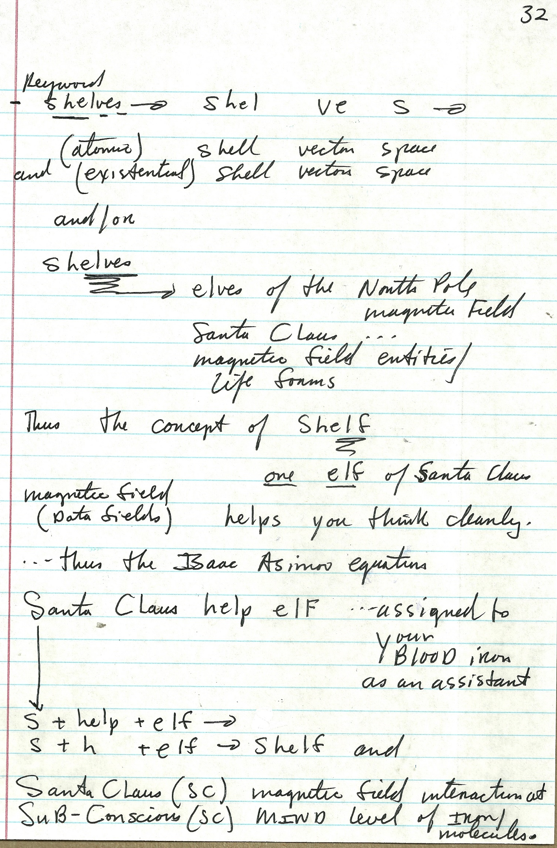 32
Keyword
- shelves → shel ve s →
(atomic) shell vector space
and (existential) shell vector space
and/or
shelves
→ elves of the North Pole
magnetic Field
Santa Claus ...
magnetic field entities/
life forms
Thus the concept of Shelf
one elf of Santa Claus
magnetic field
(Data fields) helps you think clearly.
...thus the Isaac Asimov equation
Santa Claus help elF ...assigned to
your
BLOOD iron
as an assistant
S + help + elf →
S + h + elf → Shelf and
Santa Claus (SC) magnetic field interaction at
SUB-Conscious (SC) MIND level of Iron/
molecules.